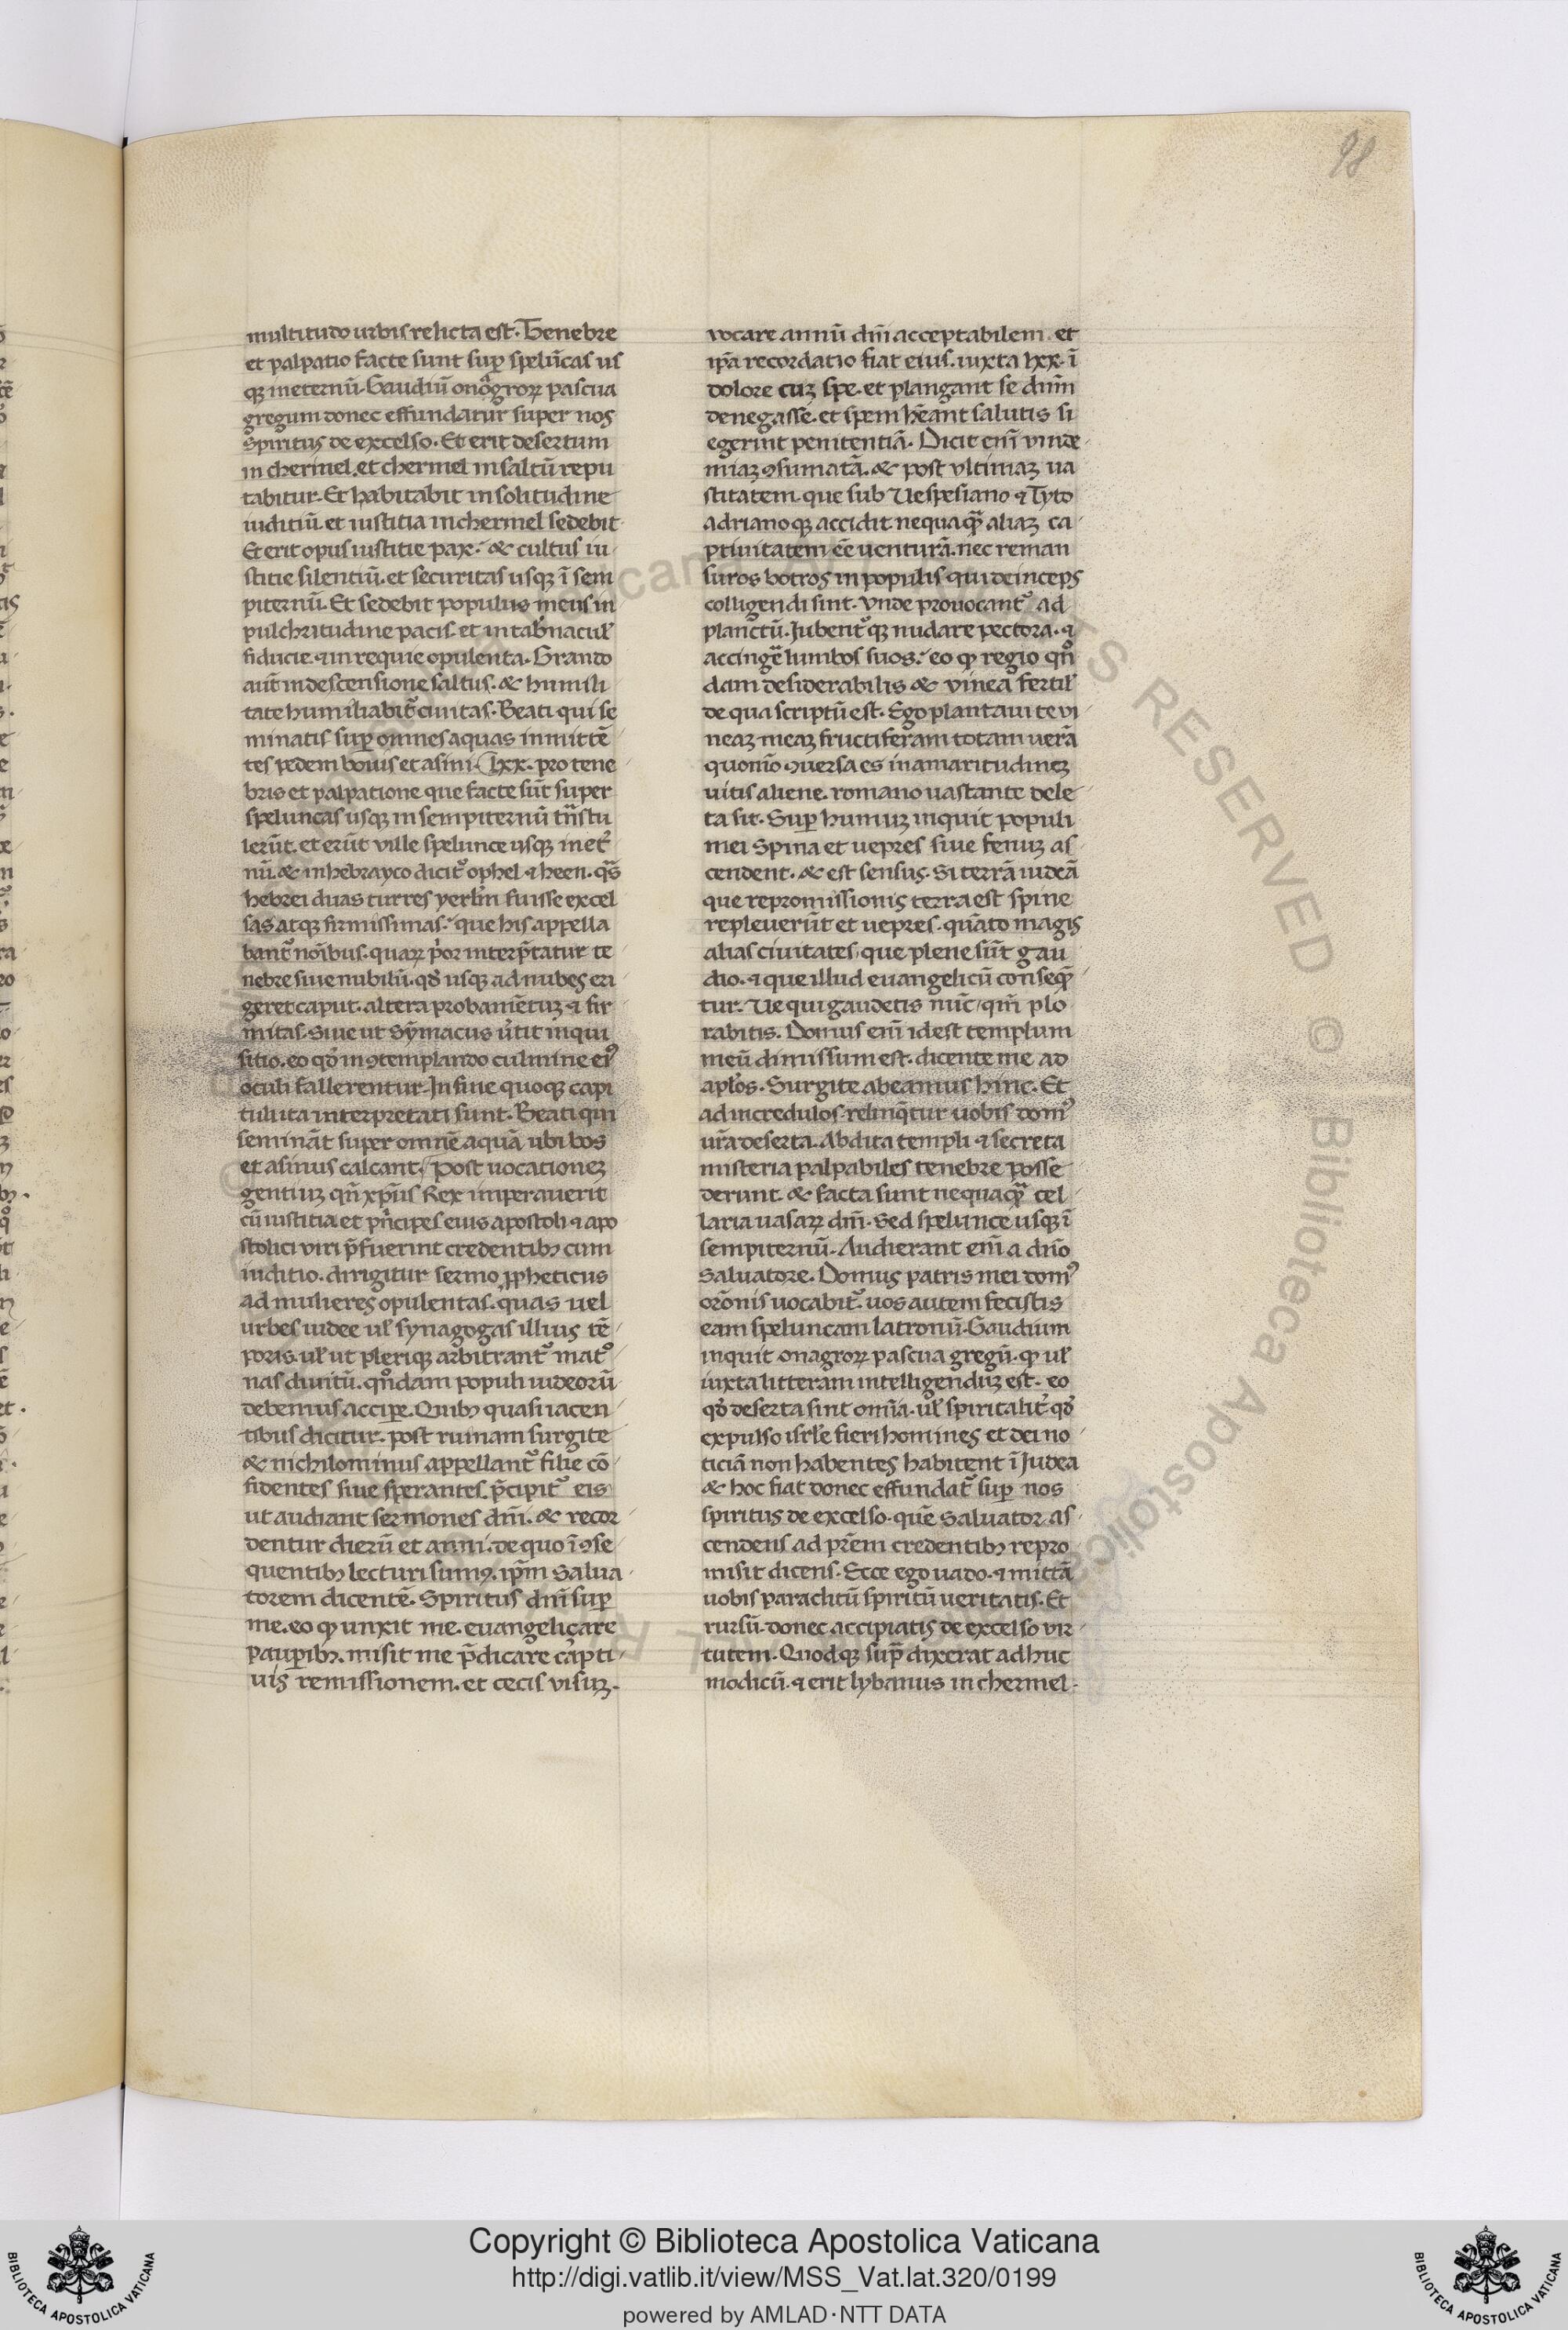 98
multitudo urbis relicta est. Tenebre
et palpatio facte sunt sup̱ spelūcas us
qꝫ in eternū. Gaudiū onogroꝝ pascua
gregum donec effundatur super nos
spiritus de excelso. Et erit desertum
in chermel. et chermel in saltū repu
tabitur. Et habitabit in solitudine
iuditiū. et iustitia in chermel sedebit.
Et erit opus iustitie pax. & cultus iu
stitie silentiū. et securitas usqꝫ ī sem
piternū. Et sedebit populus meus in
pulchritudine pacis. et in tab̄nacul̄
fiducie. ⁊ in requie opulenta. Grando
aūt in descensione saltus. & humili
tate humiliabit᷑ ciuitas. Beati qui se
minatis sup̱ omnes aquas inmittē
tes pedem bouis et asini. lxx. pro tene
bris et palpatione que facte sūt super
speluncas usqꝫ in sempiternū trāstu
lerūt. et erūt ville spelunce usqꝫ in et᷑
nū. & in hebrayco dicit᷑ ophel ⁊ heen. qͣs
hebrei duas turres yerl̄m fuisse excel
sas atqꝫ firmissimas. que his appella
bant᷑ noībus. quaꝝ p̄or interp̄tatur te
nebre siue nubilū. qđ usqꝫ ad nubes eri
geret caput. altera probamētuꝫ ⁊ fir
mitas. Siue ut Symacus v̄tit inqui
sitio. eo qđ in ꝯtemplando culmine eiꝰ
oculi fallerentur. In fine quoqꝫ capi
tuli ita interpretati sunt. Beati qui
semināt super omnē aquā ubi bos
et asinus calcant. Post uocationeꝫ
gentiuꝫ qn̄ xp̄us Rex imperauerit
cū iustitia et pͥncipes eius apostoli ⁊ apo
stolici viri p̄fuerint credentibꝫ cum
iuditio. dirigitur sermo ꝓpheticus
ad mulieres opulentas. quas uel
urbes iudee ul̄ synagogas illius tē
poris. ul̄ ut pleriqꝫ arbitrant᷑ matͦ
nas diuitū. qͦndam populi iudeorū
debemus accipe. Quibꝫ quasi iacen
tibus dicitur. post ruinam surgite
& nichilominus appellant᷑ filie cō
fidentes siue sperantes. p̄cipit᷑ eis
ut audiant sermones dn̄i. & recor
dentur dierū et anni. de quo ī ꝯse
quentibꝫ lecturi sumꝰ. ip̄m Salua
torem dicentē. Spiritus dn̄i sup̱
me. eo ꝙ unxit me. euangelicare
paup̱ibꝫ. misit me p̄dicare capti
uis remissionem. et cecis visuꝫ.
vocare annū dn̄i acceptabilem. et
ip̄a recordatio fiat eius. iuxta lxx. ī
dolore cuꝫ spe. et plangant se dn̄m
denegasse. et spem hēant salutis si
egerint penitentiā. Dicit enī vinde
miaꝫ ꝯsumatā. & post vltimaꝫ ua
stitatem. que sub Uespesiano ⁊ Tyto
adrianoqꝫ accidit. nequaqͣ̄ aliaꝫ ca
ptiuitatem eē uenturā. nec reman
suros botros in populis qui deinceps
colligendi sint. Vnde prouocant᷑ ad
planctū. Iubent᷑qꝫ nudare pectora. ⁊
accingē lumbos suos. eo ꝙ regio qͦn
dam desiderabilis & vinea fertil̄
de qua scriptū est. Ego plantaui te vi
neaꝫ meaꝫ fructiferam totam verā
quomō ꝯuersa es in amaritudineꝫ
uitis aliene. romano uastante dele
ta sit. Sup̱ humuꝫ inquit populi
mei Spina et uepres siue fenuꝫ as
cendent. & est sensus. Si terrā iudeā
que repromissionis terra est spine
repleuerūt et uepres. quāto magis
alias ciuitates, que plene sūt gau
dio. ⁊ que illud euangelicū conseqͥ̄
tur. Ue qui gaudetis nūc, qm̄ plo
rabitis. Domus enī idest templum
meū dimissum est. dicente me ad
apl̄os. Surgite abeamus hinc. Et
ad incredulos. relinq̄tur uobis domꝰ
ur̄a deserta. Abdita templi ⁊ secreta
misteria palpabiles tenebre posse
derunt. & facta sunt nequaqͣ̄ cel
laria uasaꝝ dn̄i. Sed spelunce usqꝫ ī
sempiternū. Audierant enī a dn̄o
saluatore. Domus patris mei domꝰ
orōnis uocabit᷑. uos autem fecistis
eam speluncam latronū. Gaudium
inquit onagroꝝ pascua gregū. ꝙ ul̄
iuxta litteram intelligenduꝫ est. eo
qđ deserta sint omīa. ul̄ spiritalit᷑ qđ
expulso isrl̄e fieri homines et dei no
ticiā non habentes habitent ī Iudea
& hoc fiat donec effundat᷑ sup̱ nos
spiritus de excelso. quē Saluator as
cendens ad pr̄em credentibꝫ repro
misit dicens. Ecce ego uado. ⁊ mittā
uobis paraclitū spiritū ueritatis. Et
rursū. donec accipiatis de excelso vir
tutem. Quodqꝫ supͣ dixerat adhuc
modicū. ⁊ erit lybanus in chermel.
Copyright © Biblioteca Apostolica Vaticana
http://digi.vatlib.it/view/MSS_Vat.lat.320/0199
powered by AMLAD·NTT DATA
BIBLIOTECA APOSTOLICA VATICANA
BIBLIOTECA APOSTOLICA VATICANA